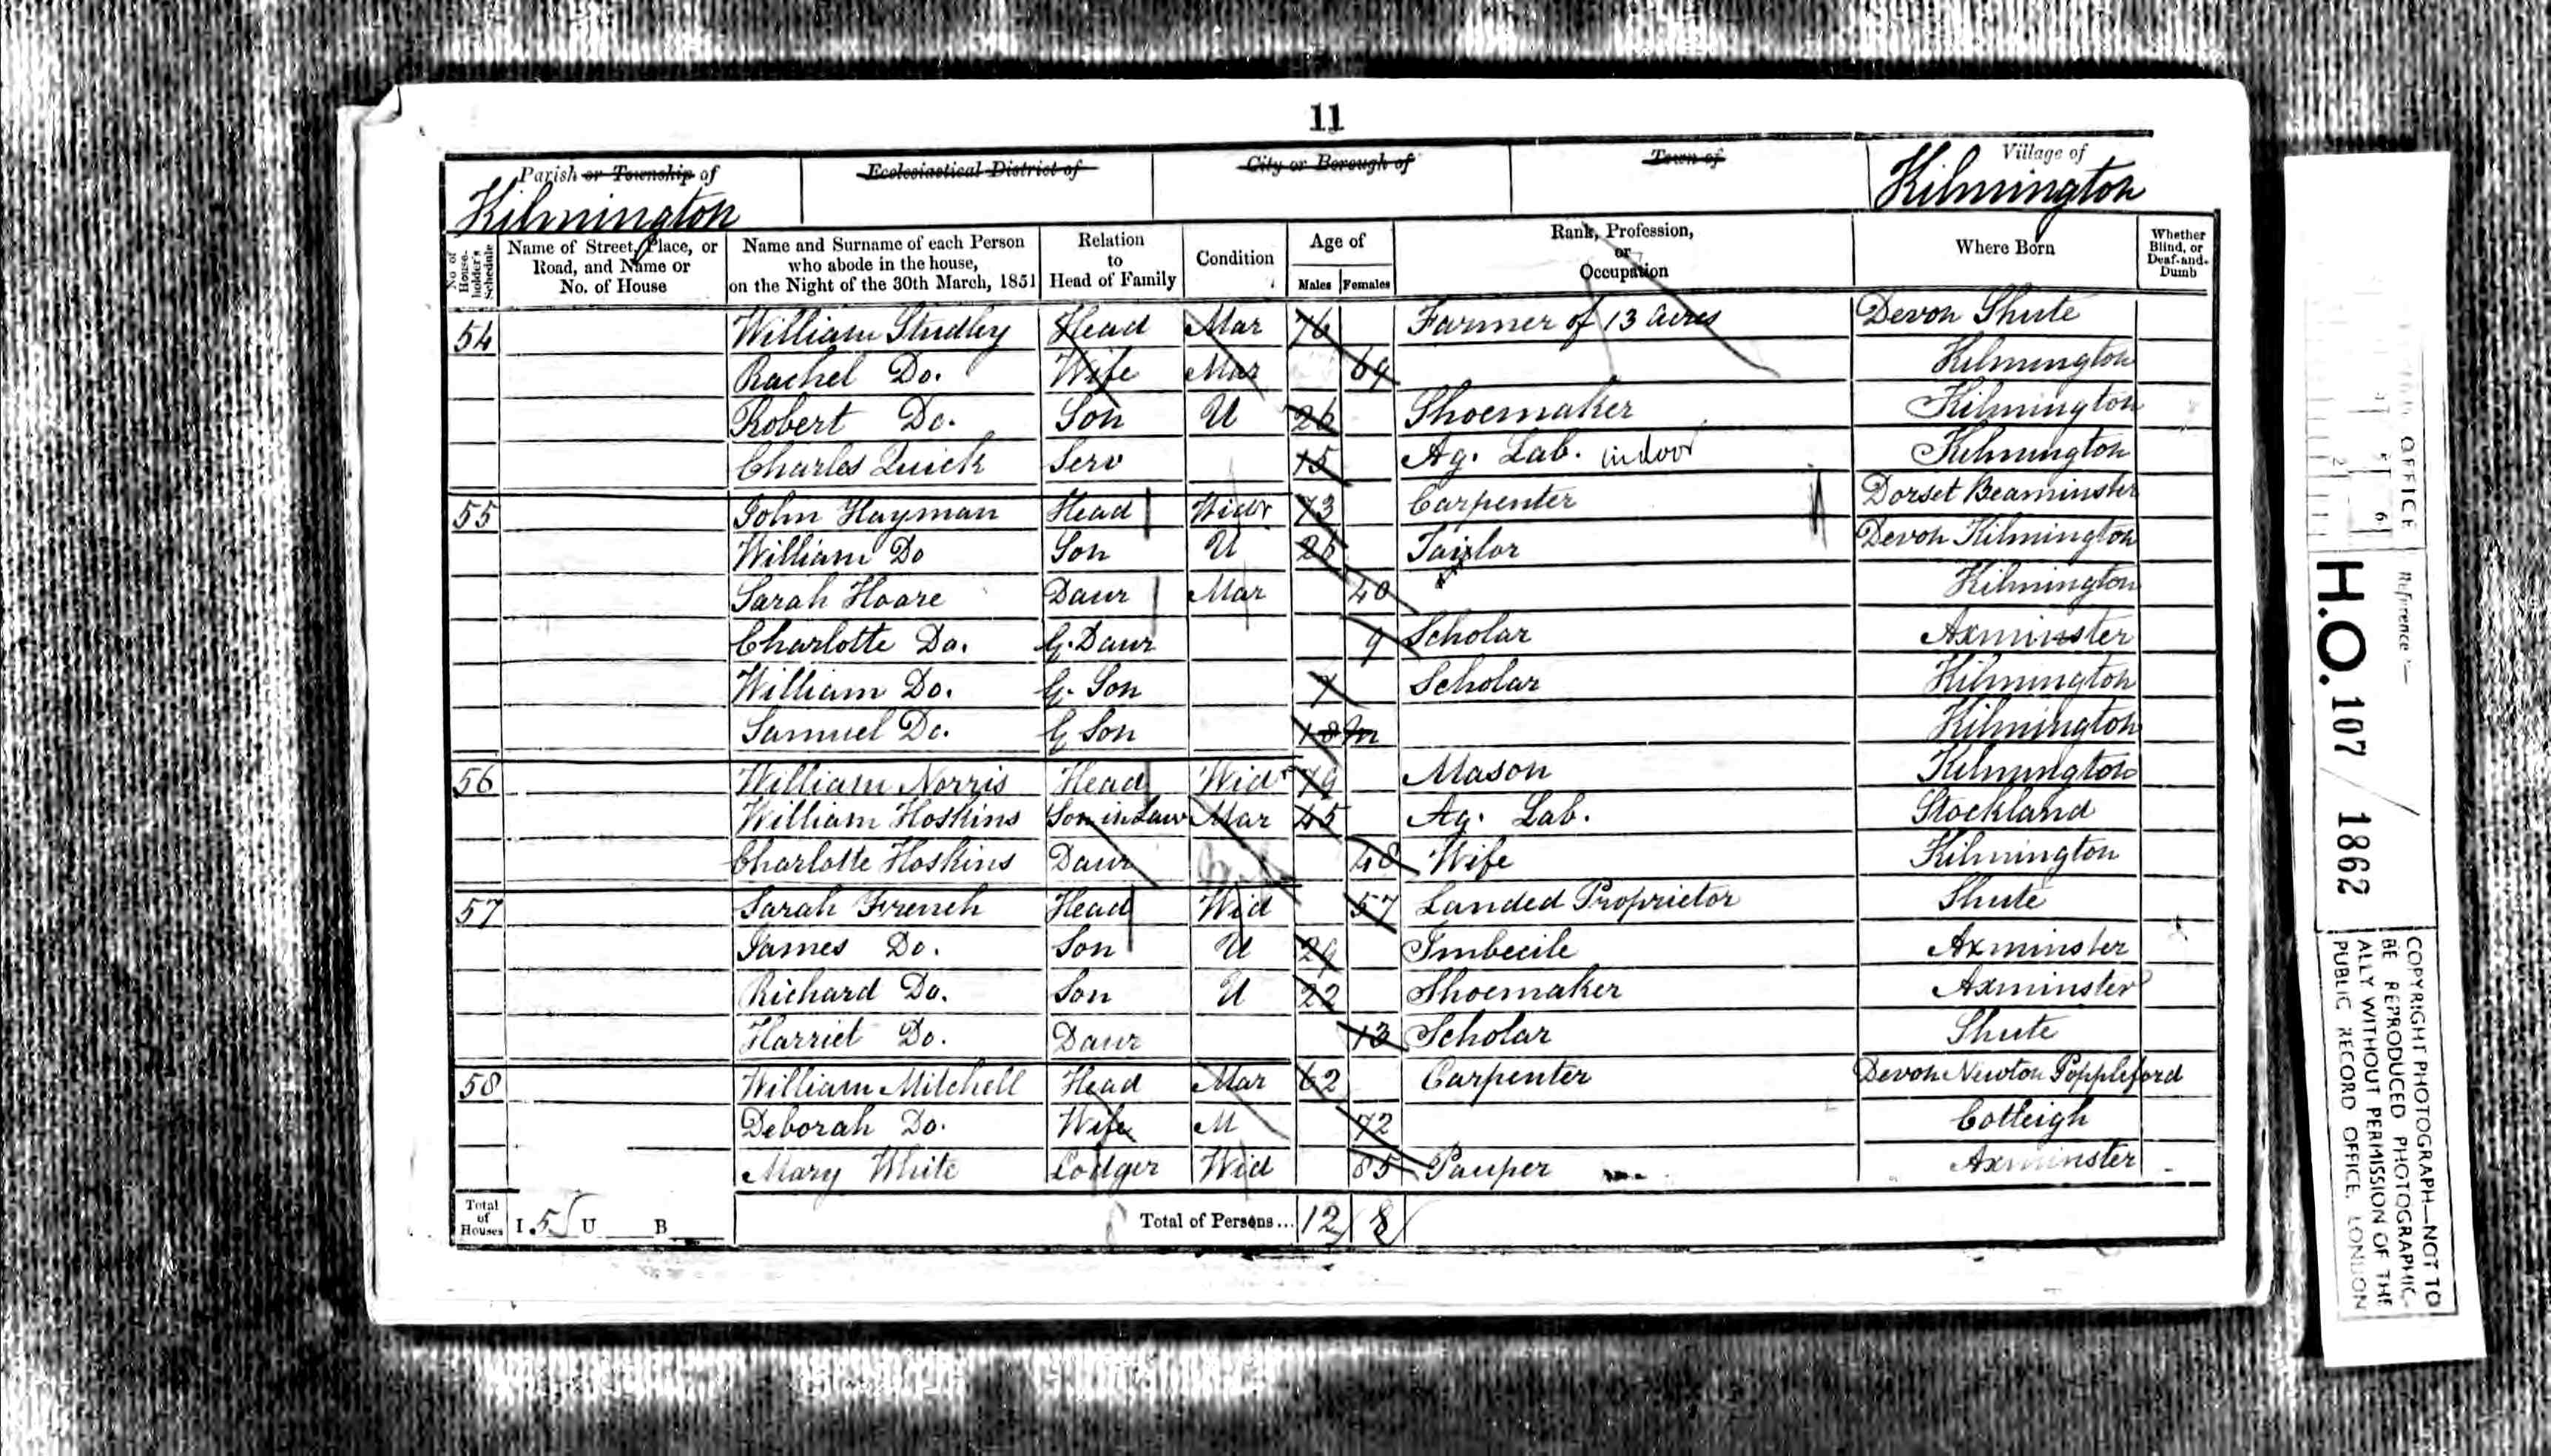 11
Parish or Township of
Kilmington
Ecclesiastical District of
City or Borough of
Town of
Village of
Kilmington
No. of House-holder's Schedule
Name of Street, Place, or Road, and Name or No. of House
Name and Surname of each Person who abode in the house, on the Night of the 30th March, 1851
Relation to Head of Family
Condition
Age of
Males Females
Rank, Profession, or Occupation
Where Born
Whether Blind, or Deaf-and-Dumb
54 William Studley Head Mar 76 Farmer of 13 acres Devon Shute
Rachel Do. Wife Mar 69 Kilmington
Robert Do. Son U 26 Shoemaker Kilmington
Charles Quick Serv 15 Ag. Lab. indoor Kilmington
55 John Hayman Head Widr 73 Carpenter Dorset Beaminster
William Do Son U 25 Tailor Devon Kilmington
Sarah Hoare Daur Mar 40 Kilmington
Charlotte Do. G. Daur 9 Scholar Axminster
William Do. G. Son 7 Scholar Kilmington
Samuel Do. G Son 18m Kilmington
56 William Norris Head Widr 79 Mason Kilmington
William Hoskins Son in Law Mar 45 Ag. Lab. Stockland
Charlotte Hoskins Daur 48 Wife Kilmington
57 Sarah French Head Wid 57 Landed Proprietor Shute
James Do. Son U 24 Imbecile Axminster
Richard Do. Son U 22 Shoemaker Axminster
Harriet Do. Daur 13 Scholar Shute
58 William Mitchell Head Mar 62 Carpenter Devon Newton Poppleford
Deborah Do. Wife M 72 Cotleigh
Mary White Lodger Wid 85 Pauper Axminster
Total of Houses I. 5 U B
Total of Persons... 12 8
OFFICE
Reference:-
H.O. 107 / 1862
COPYRIGHT PHOTOGRAPH—NOT TO
BE REPRODUCED PHOTOGRAPHIC-
ALLY WITHOUT PERMISSION OF THE
PUBLIC RECORD OFFICE, LONDON